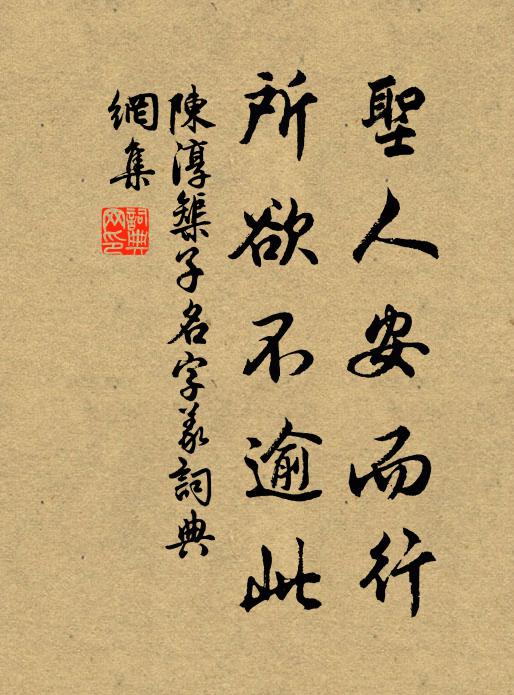 聖人安而行
所欲不逾此
陳淳築子名字義詞典
網集
詞典
网印